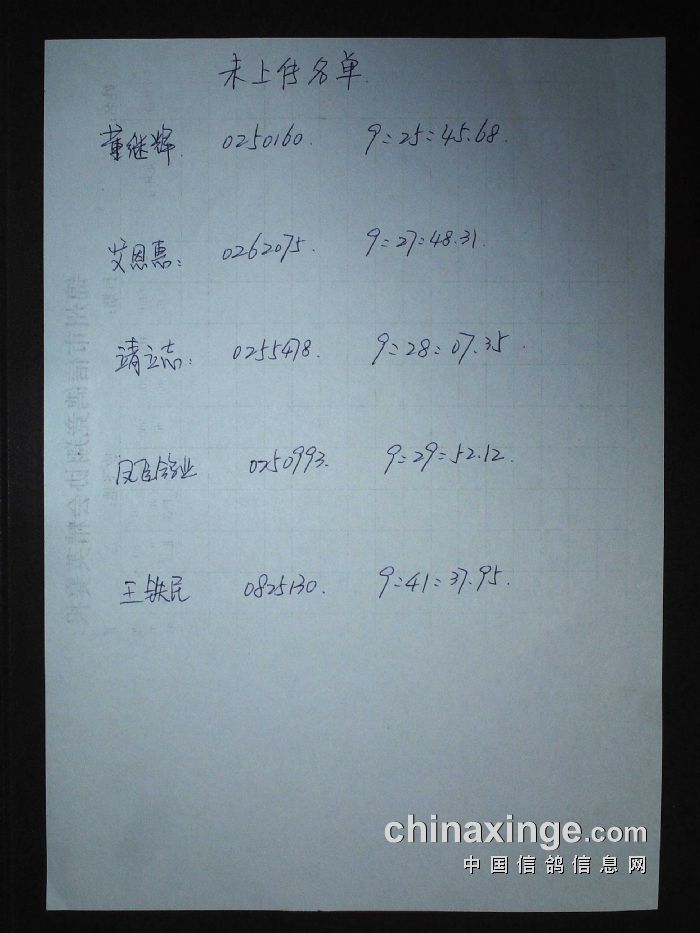 未上传名单.
董继辉. 0250160. 9:25:45.68.
艾恩惠: 0262075. 9:27:48.31.
靖立志: 0255478. 9:28:07.35.
0250993. 9:29:52.12.
王铁民 0825130. 9:41:37.95.
chinaxinge.com
中国信鸽信息网